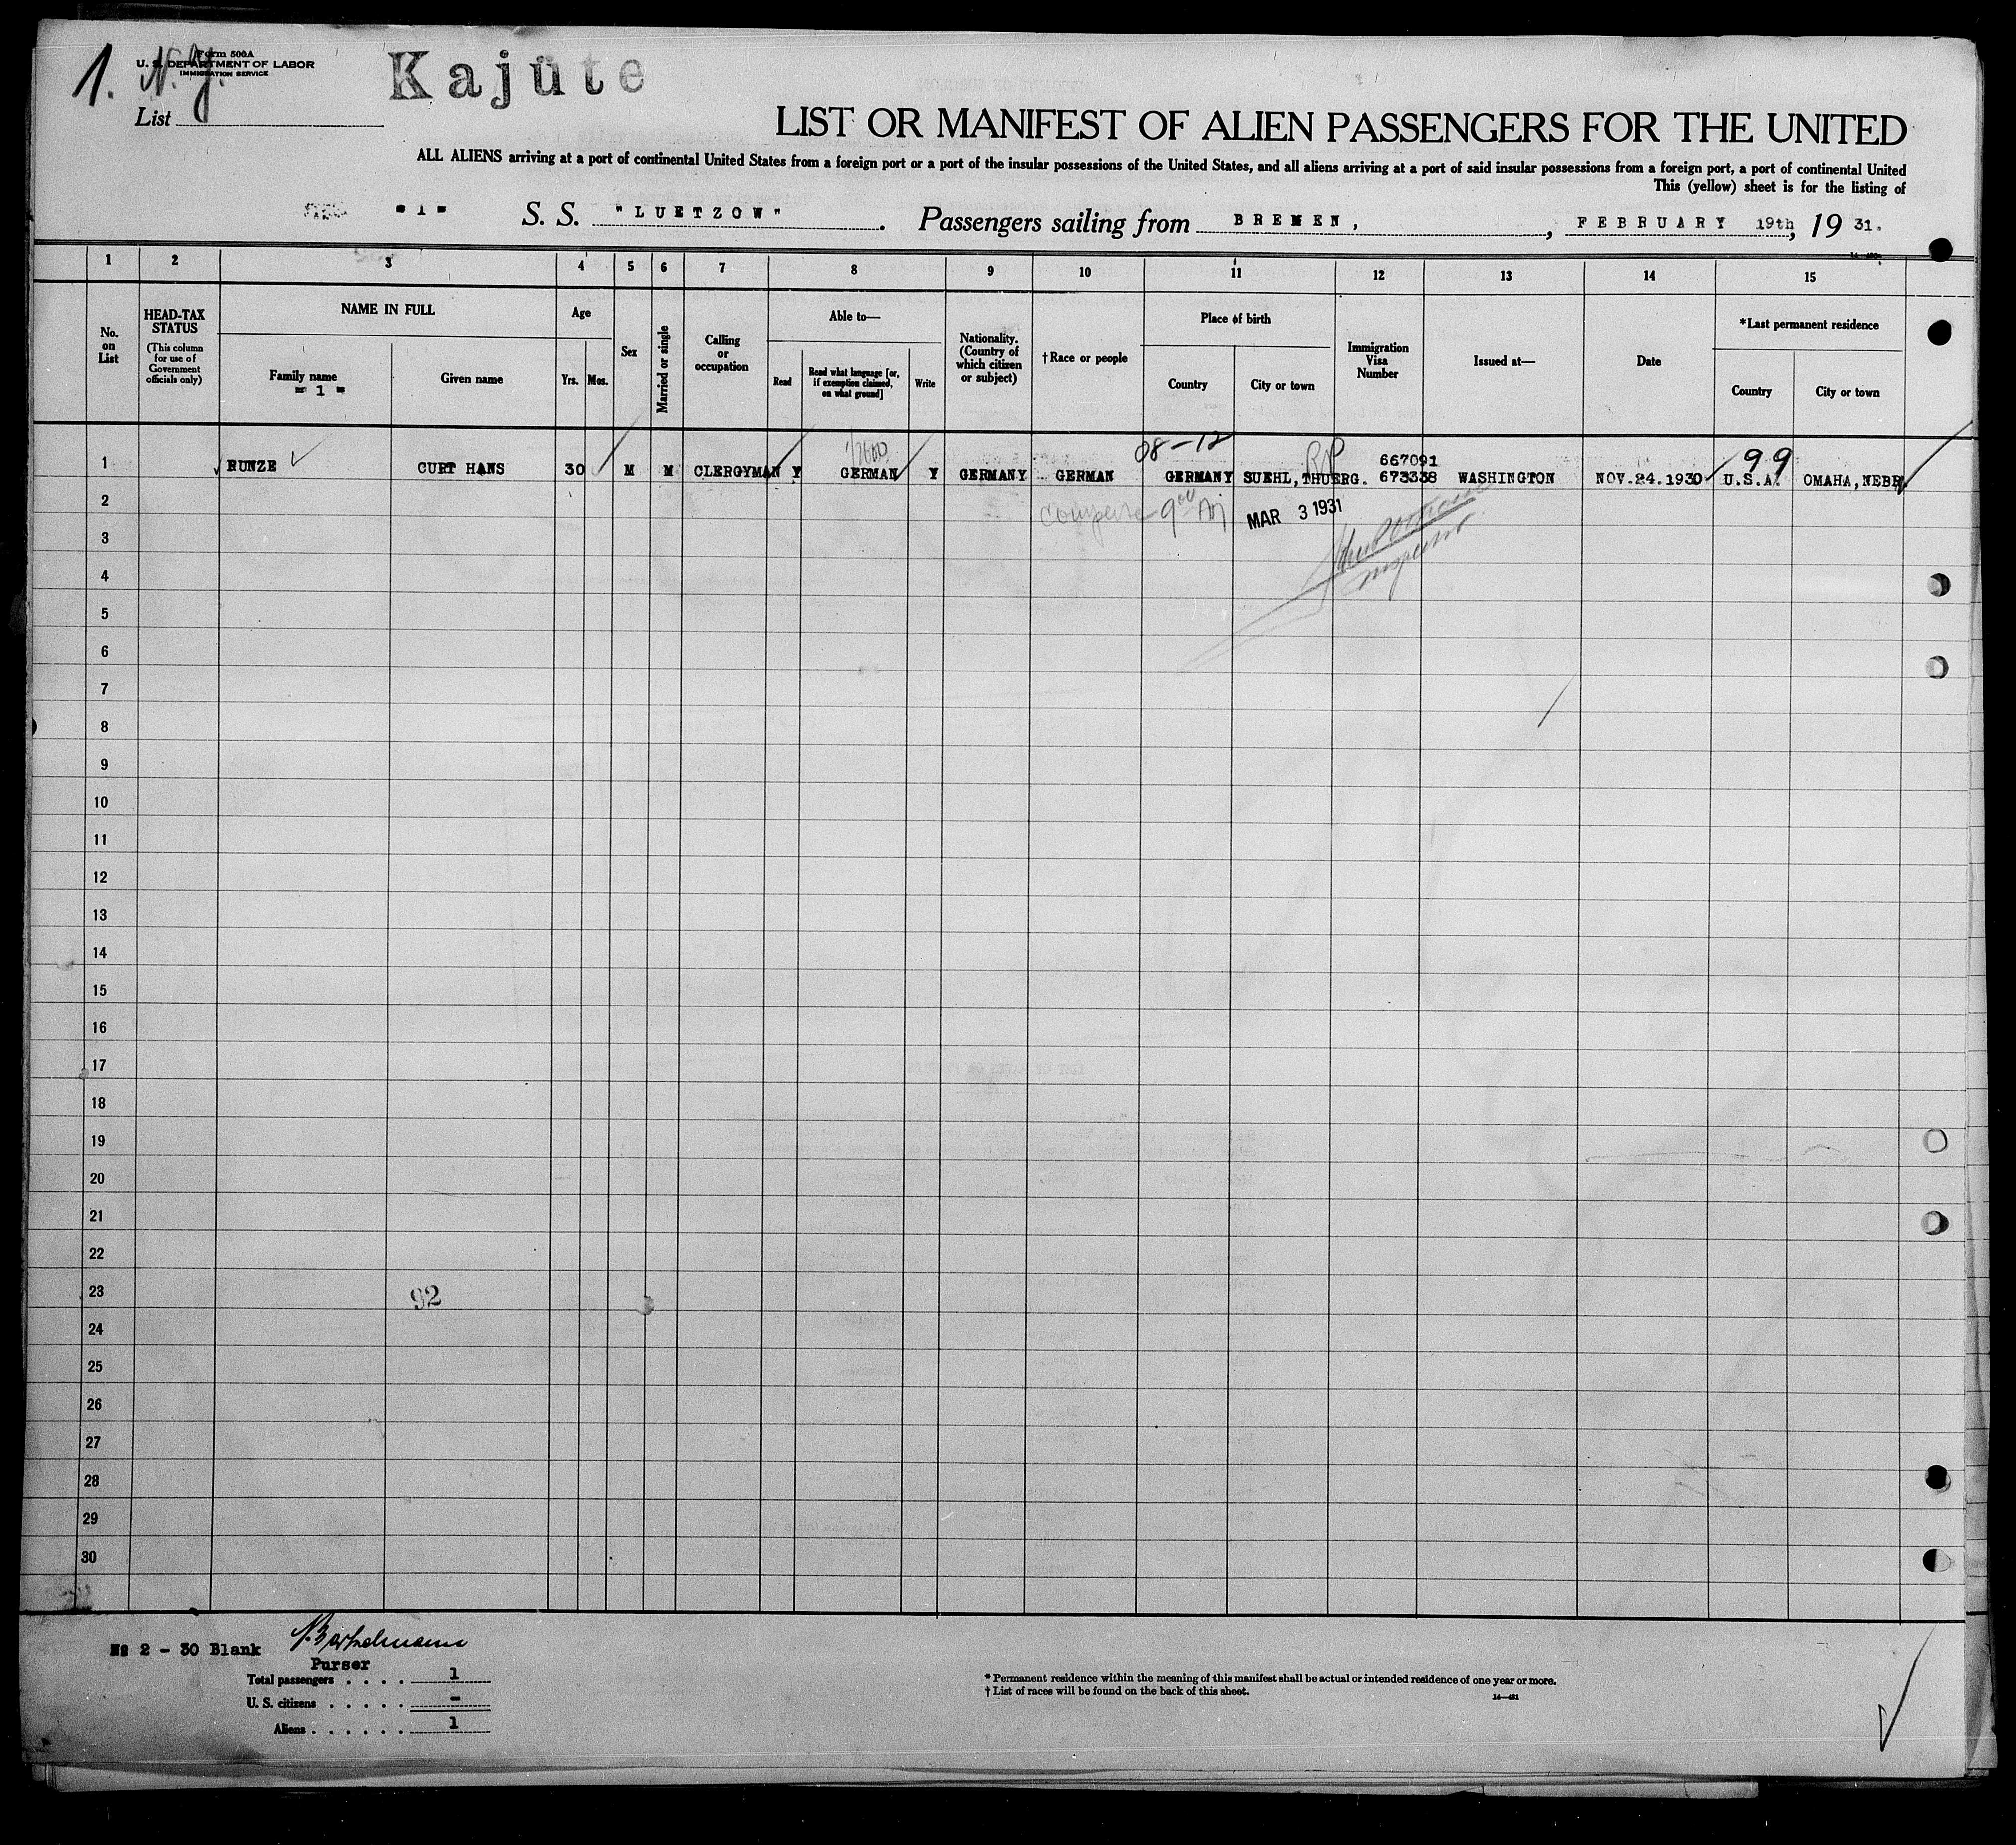 1. N.Y.
Form 500A
U. S. DEPARTMENT OF LABOR
IMMIGRATION SERVICE
Kajüte
List
LIST OR MANIFEST OF ALIEN PASSENGERS FOR THE UNITED
ALL ALIENS arriving at a port of continental United States from a foreign port or a port of the insular possessions of the United States, and all aliens arriving at a port of said insular possessions from a foreign port, a port of continental United
This (yellow) sheet is for the listing of
- 1 - S. S. "LUETZOW". Passengers sailing from BREMEN, , FEBRUARY 19th, 19 31.
1 2 3 4 5 6 7 8 9 10 11 12 13 14 15
No. on List
HEAD-TAX STATUS
(This column for use of Government officials only)
NAME IN FULL
Family name
- 1 -
Given name
Age
Yrs. Mos.
Sex
Married or single
Calling or occupation
Able to—
Read
Read what language [or, if exemption claimed, on what ground]
Write
Nationality. (Country of which citizen or subject)
†Race or people
Place of birth
Country
City or town
Immigration Visa Number
Issued at—
Date
*Last permanent residence
Country
City or town
08-12
RP
667091
99
1 RUNZE CURT HANS 30 M M CLERGYMAN Y GERMAN Y GERMANY GERMAN GERMANY SUEHL, THUERG. 673338 WASHINGTON NOV.24.1930 U.S.A. OMAHA, NEBR.
2
MAR 3 1931
3
4
5
6
7
8
9
10
11
12
13
14
15
16
17
18
19
20
21
22
23
92
24
25
26
27
28
29
30
№ 2 - 30 Blank
Purser
Total passengers . . . . 1
U. S. citizens . . . . . -
Aliens . . . . . . 1
* Permanent residence within the meaning of this manifest shall be actual or intended residence of one year or more.
† List of races will be found on the back of this sheet.